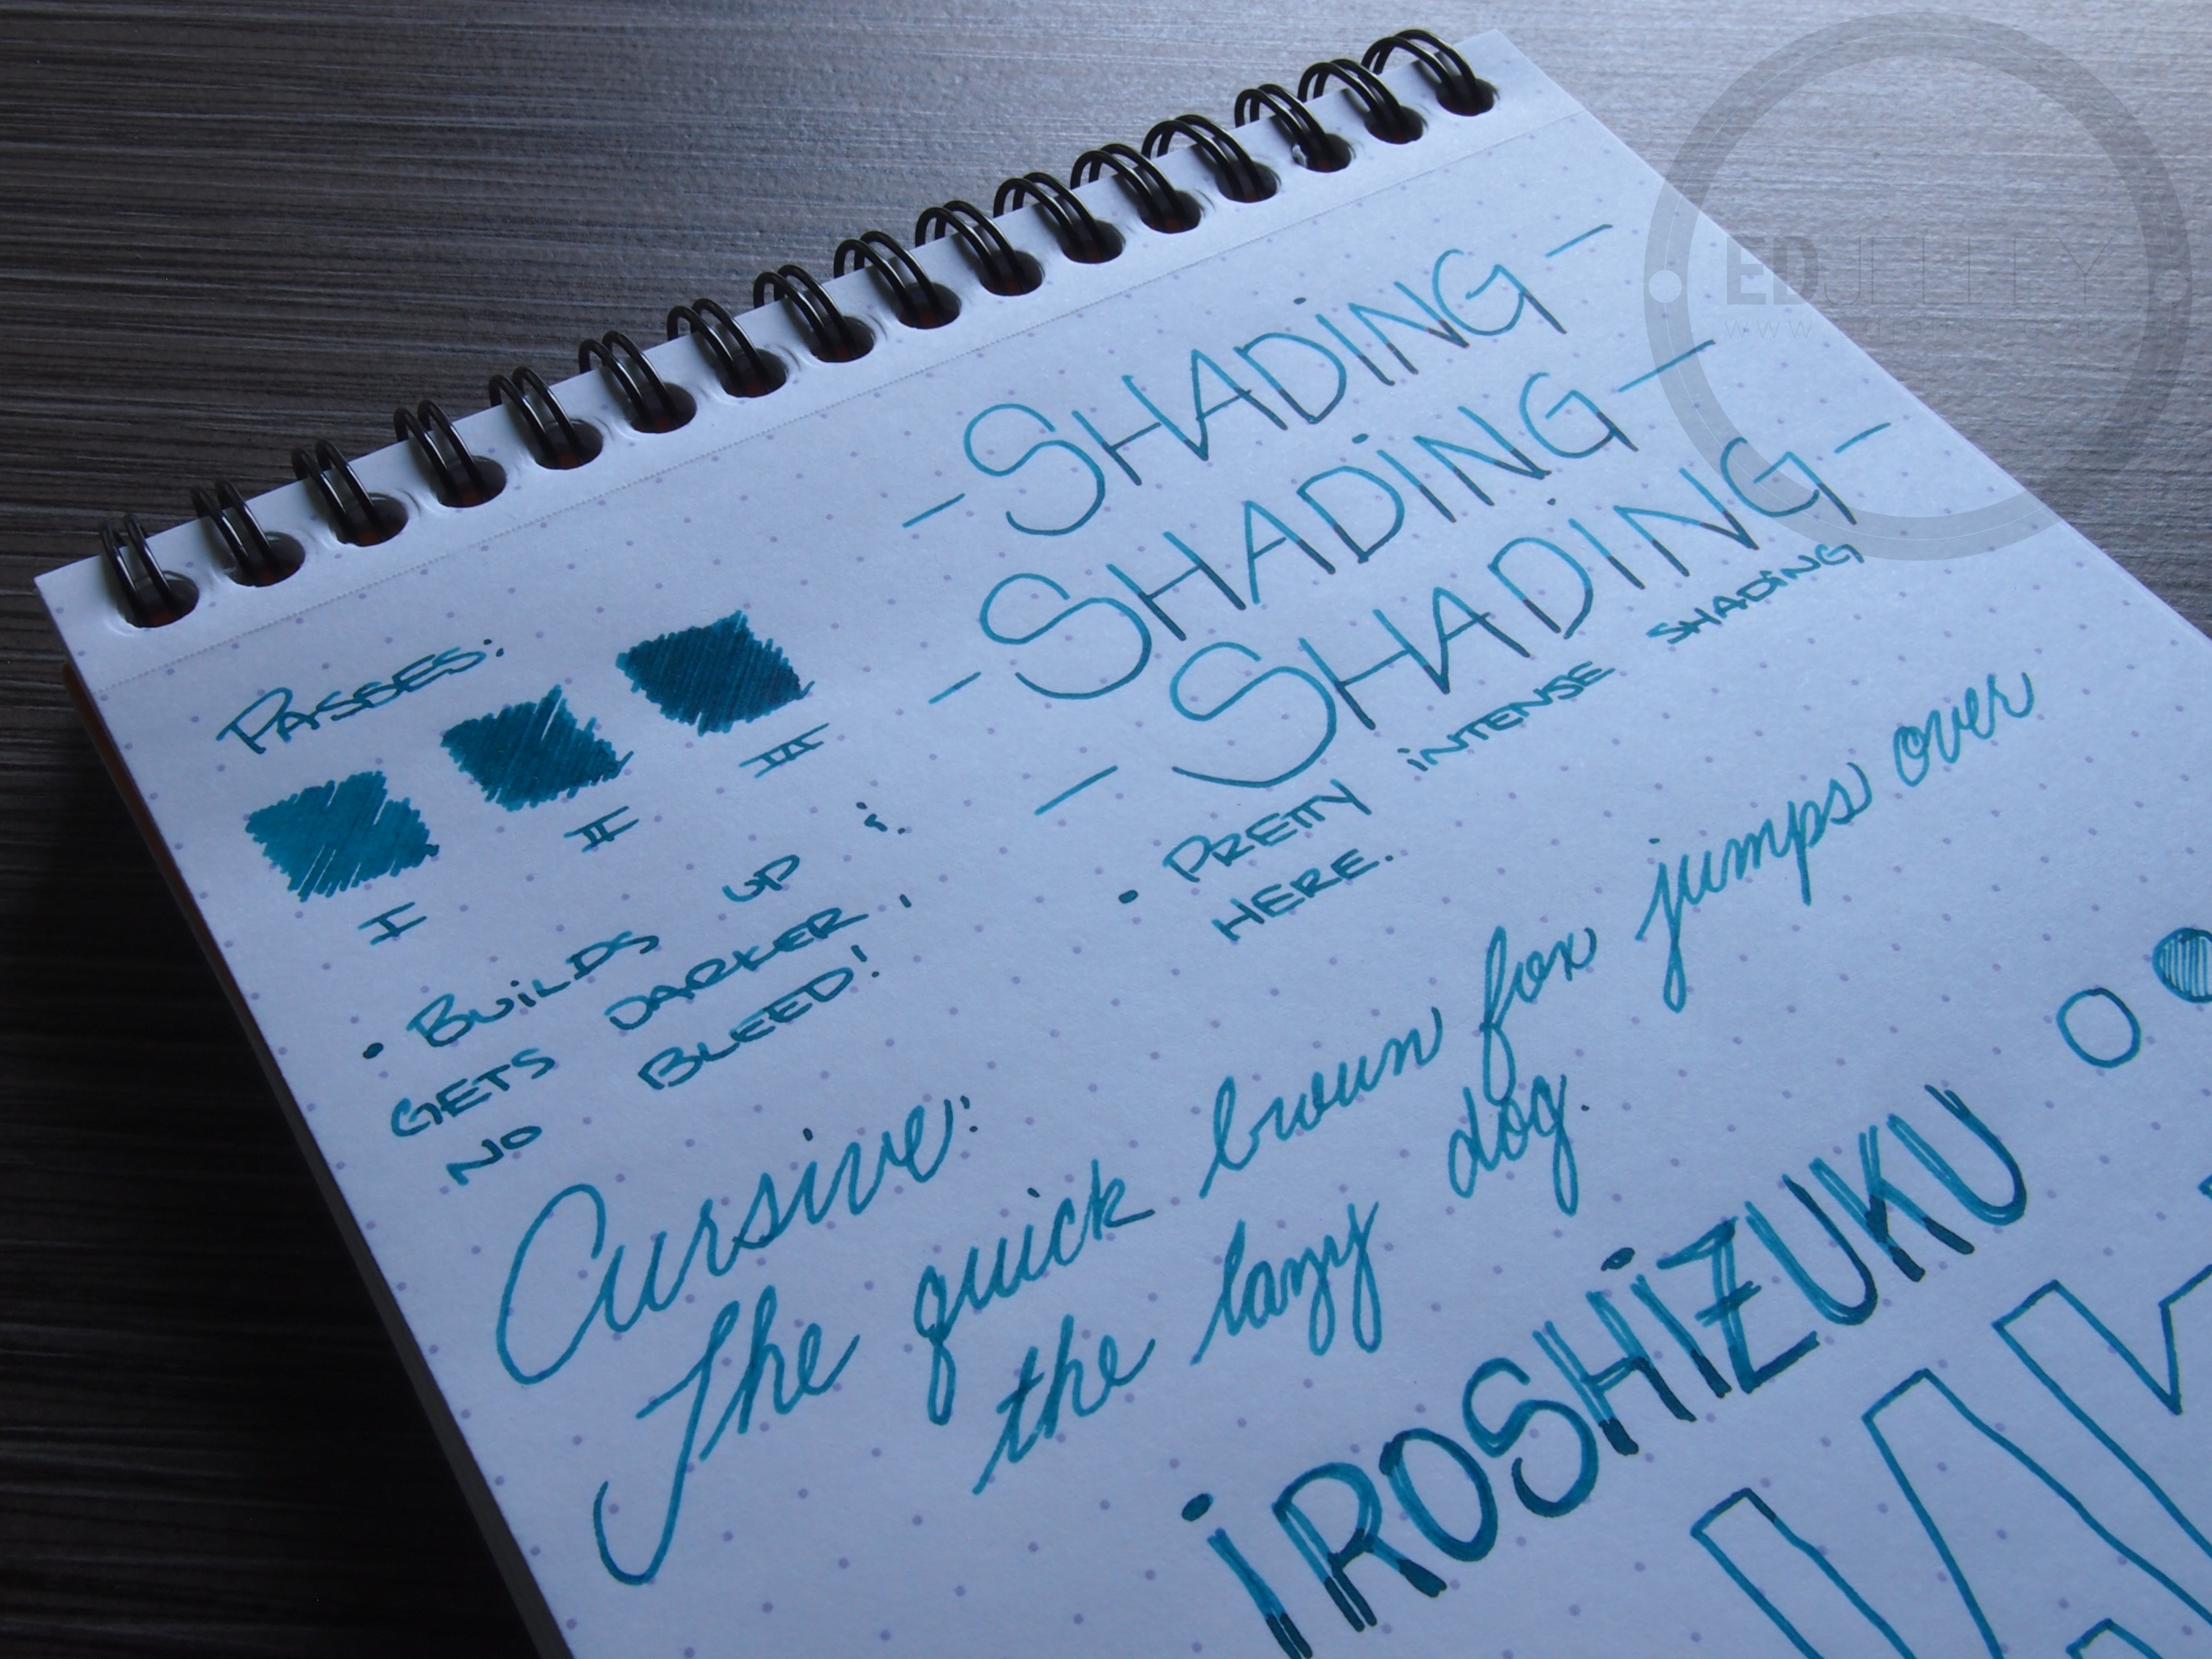 - SHADING -
- SHADING -
- SHADING -
• PRETTY INTENSE SHADING
HERE.
PASSES:
I II III
• BUILDS UP :
GETS DARKER,
NO BLEED!
Cursive:
The quick brown fox jumps over
the lazy dog.
IROSHIZUKU
EDJELLEY